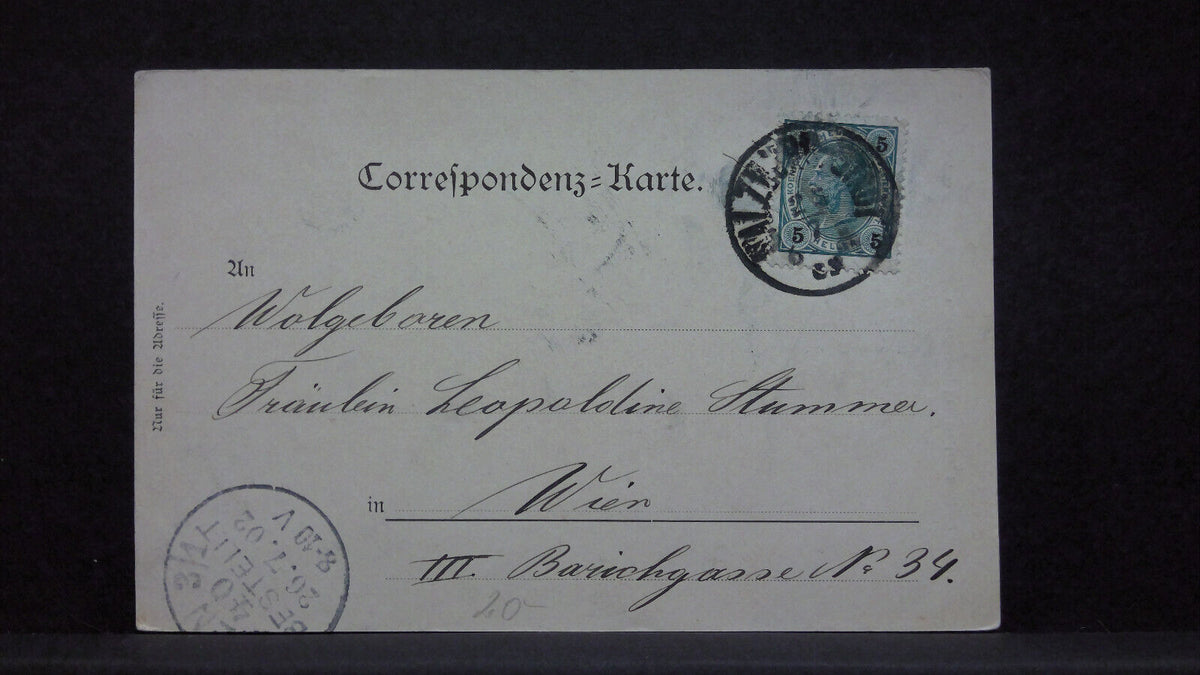 Correspondenz-Karte.
5
5
5
An
Nur für die Adresse.
Wolgeboren
Fräulein Leopoldine Stummer.
in Wien
III. Barichgasse No 34.
20-
8-10 V
26.7.02
BESTELLT
40
N 3/1T